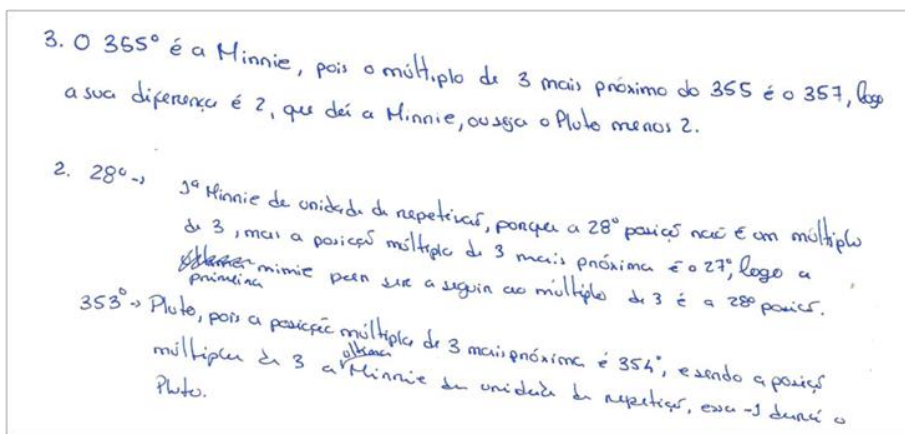 3. O 365° é a Minnie, pois o múltiplo de 3 mais próximo do 355 é o 357, logo
a sua diferença é 2, que dá a Minnie, ou seja o Pluto menos 2.
2. 28° → 1ª Minnie da unidade de repetição, porque a 28° posição não é um múltiplo
de 3, mas a posição múltipla de 3 mais próxima é o 27°, logo a
primeira mimie para ser a seguir ao múltiplo de 3 é a 28° posição.
353° → Pluto, pois a posição múltipla de 3 mais próxima é 354°, e sendo a posição
múltipla de 3 a última Minnie da unidade de repetição, essa -1 dará o
Pluto.